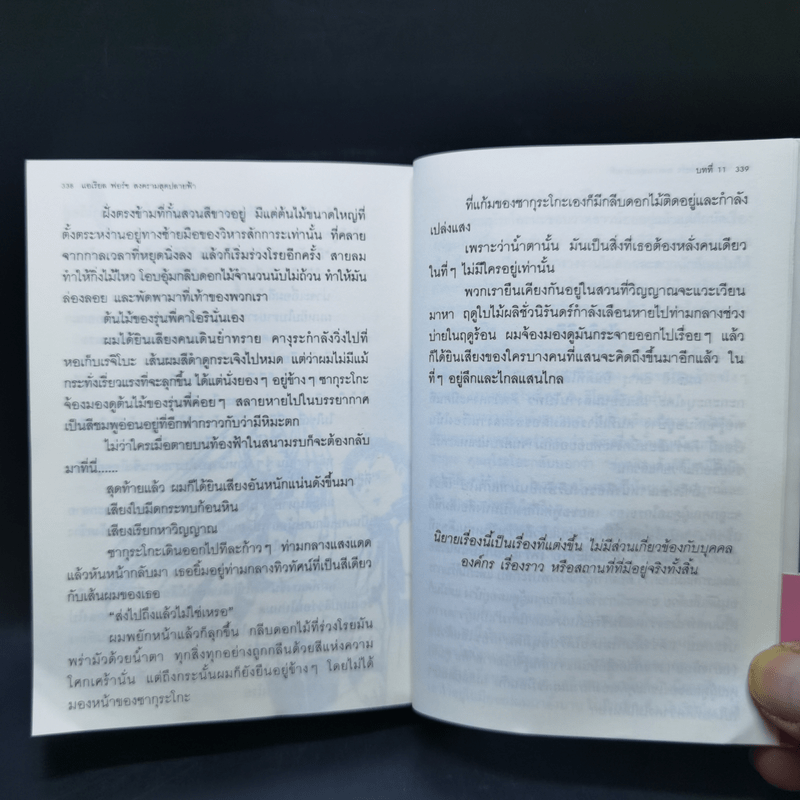 338 แอเรียล ฟอร์ซ สงครามสุดปลายฟ้า
ฝั่งตรงข้ามที่กั้นสวนสีขาวอยู่ มีแต่ต้นไม้ขนาดใหญ่ที่
ตั้งตระหง่านอยู่ทางซ้ายมือของวิหารสักการะเท่านั้น ที่คลาย
จากกาลเวลาที่หยุดนิ่งลง แล้วก็เริ่มร่วงโรยอีกครั้ง สายลม
ทำให้กิ่งไม้ไหว โอบอุ้มกลีบดอกไม้จำนวนนับไม่ถ้วน ทำให้มัน
ล่องลอย และพัดพามาที่เท้าของพวกเรา
ต้นไม้ของรุ่นพี่คาโอรินั่นเอง
ผมได้ยินเสียงคนเดินย่ำทราย คางุระกำลังวิ่งไปที่
หอเก็บเรจิโบะ เส้นผมสีดำดูกระเจิงไปหมด แต่ว่าผมไม่มีแม้
กระทั่งเรี่ยวแรงที่จะลุกขึ้น ได้แต่นั่งยองๆ อยู่ข้างๆ ซากุระโกะ
จ้องมองดูต้นไม้ของรุ่นพี่ค่อยๆ สลายหายไปในบรรยากาศ
เป็นสีชมพูอ่อนอยู่ที่อีกฟากราวกับว่ามีหิมะตก
ไม่ว่าใครเมื่อตายบนท้องฟ้าในสนามรบก็จะต้องกลับ
มาที่นี่......
สุดท้ายแล้ว ผมก็ได้ยินเสียงอันหนักแน่นดังขึ้นมา
เสียงใบมีดกระทบก้อนหิน
เสียงเรียกหาวิญญาณ
ซากุระโกะเดินออกไปทีละก้าวๆ ท่ามกลางแสงแดด
แล้วหันหน้ากลับมา เธอยิ้มอยู่ท่ามกลางทิวทัศน์ที่เป็นสีเดียว
กับเส้นผมของเธอ
“ส่งไปถึงแล้วไม่ใช่เหรอ”
ผมพยักหน้าแล้วก็ลุกขึ้น กลีบดอกไม้ที่ร่วงโรยมัน
พร่ามัวด้วยน้ำตา ทุกสิ่งทุกอย่างถูกกลืนด้วยสีแห่งความ
โศกเศร้านั่น แต่ถึงกระนั้นผมก็ยังยืนอยู่ข้างๆ โดยไม่ได้
มองหน้าของซากุระโกะ
บทที่ 11 339
ที่แก้มของซากุระโกะเองก็มีกลีบดอกไม้ติดอยู่และกำลัง
เปล่งแสง
เพราะว่าน้ำตานั้น มันเป็นสิ่งที่เธอต้องหลั่งคนเดียว
ในที่ๆ ไม่มีใครอยู่เท่านั้น
พวกเรายืนเคียงกันอยู่ในสวนที่วิญญาณจะแวะเวียน
มาหา ฤดูใบไม้ผลิชั่วนิรันดร์กำลังเลือนหายไปท่ามกลางช่วง
บ่ายในฤดูร้อน ผมจ้องมองดูมันกระจายออกไปเรื่อยๆ แล้ว
ก็ได้ยินเสียงของใครบางคนที่แสนจะคิดถึงขึ้นมาอีกแล้ว ใน
ที่ๆ อยู่ลึกและไกลแสนไกล
นิยายเรื่องนี้เป็นเรื่องที่แต่งขึ้น ไม่มีส่วนเกี่ยวข้องกับบุคคล
องค์กร เรื่องราว หรือสถานที่ที่มีอยู่จริงทั้งสิ้น